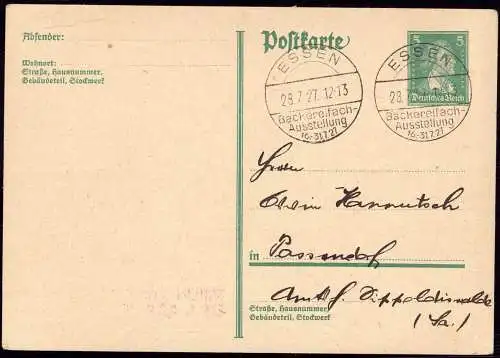 Absender:
Wohnort:
Straße, Hausnummer,
Gebäudeteil, Stockwerk
Postkarte
5 5
Deutsches Reich
ESSEN
28.7.27. 12-13
Bäckereifach-
Ausstellung
16.-31.7.27
ESSEN
28.
Bäckereifach-
Ausstellung
16.-31.7.27
Herrn
Erwin Hannutsch
in Possendorf
Amtsh. Dippoldiswalde
(Sa.)
Straße, Hausnummer,
Gebäudeteil, Stockwerk